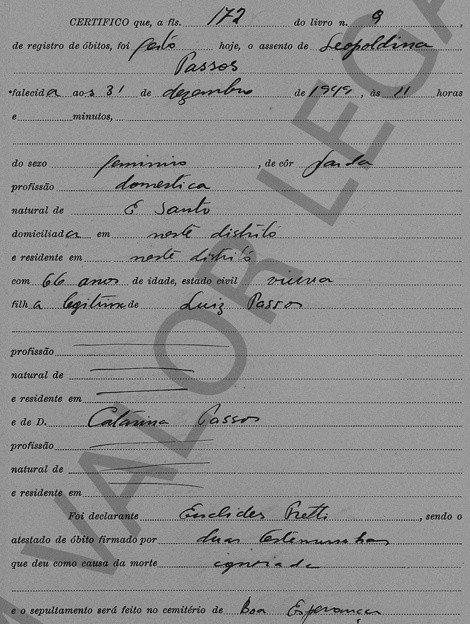 CERTIFICO que, a fls. 172 do livro n. 9,
de registro de óbitos, foi feito hoje, o assento de Leopoldina
Passos
falecida aos 31 de dezembro de 1949, às 11 horas
e minutos,
do sexo feminino, de côr parda
profissão domestica
natural de E Santo
domiciliada em neste distrito
e residente em neste distrito
com 66 anos de idade, estado civil viuva
filha legitima de Luiz Passos
profissão
natural de
e residente em
e de D. Catarina Passos
profissão
natural de
e residente em
Foi declarante Euclides Pretti, sendo o
atestado de óbito firmado por duas testemunhas
que deu como causa da morte ignorada
e o sepultamento será feito no cemitério de Boa Esperança
VALOR LEGA